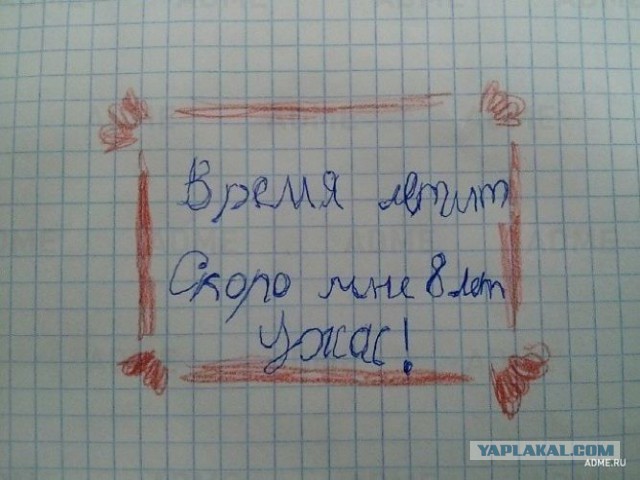 Время летит
Скоро мне 8 лет
Ужас!
YAPLAKAL.COM
ADME.RU